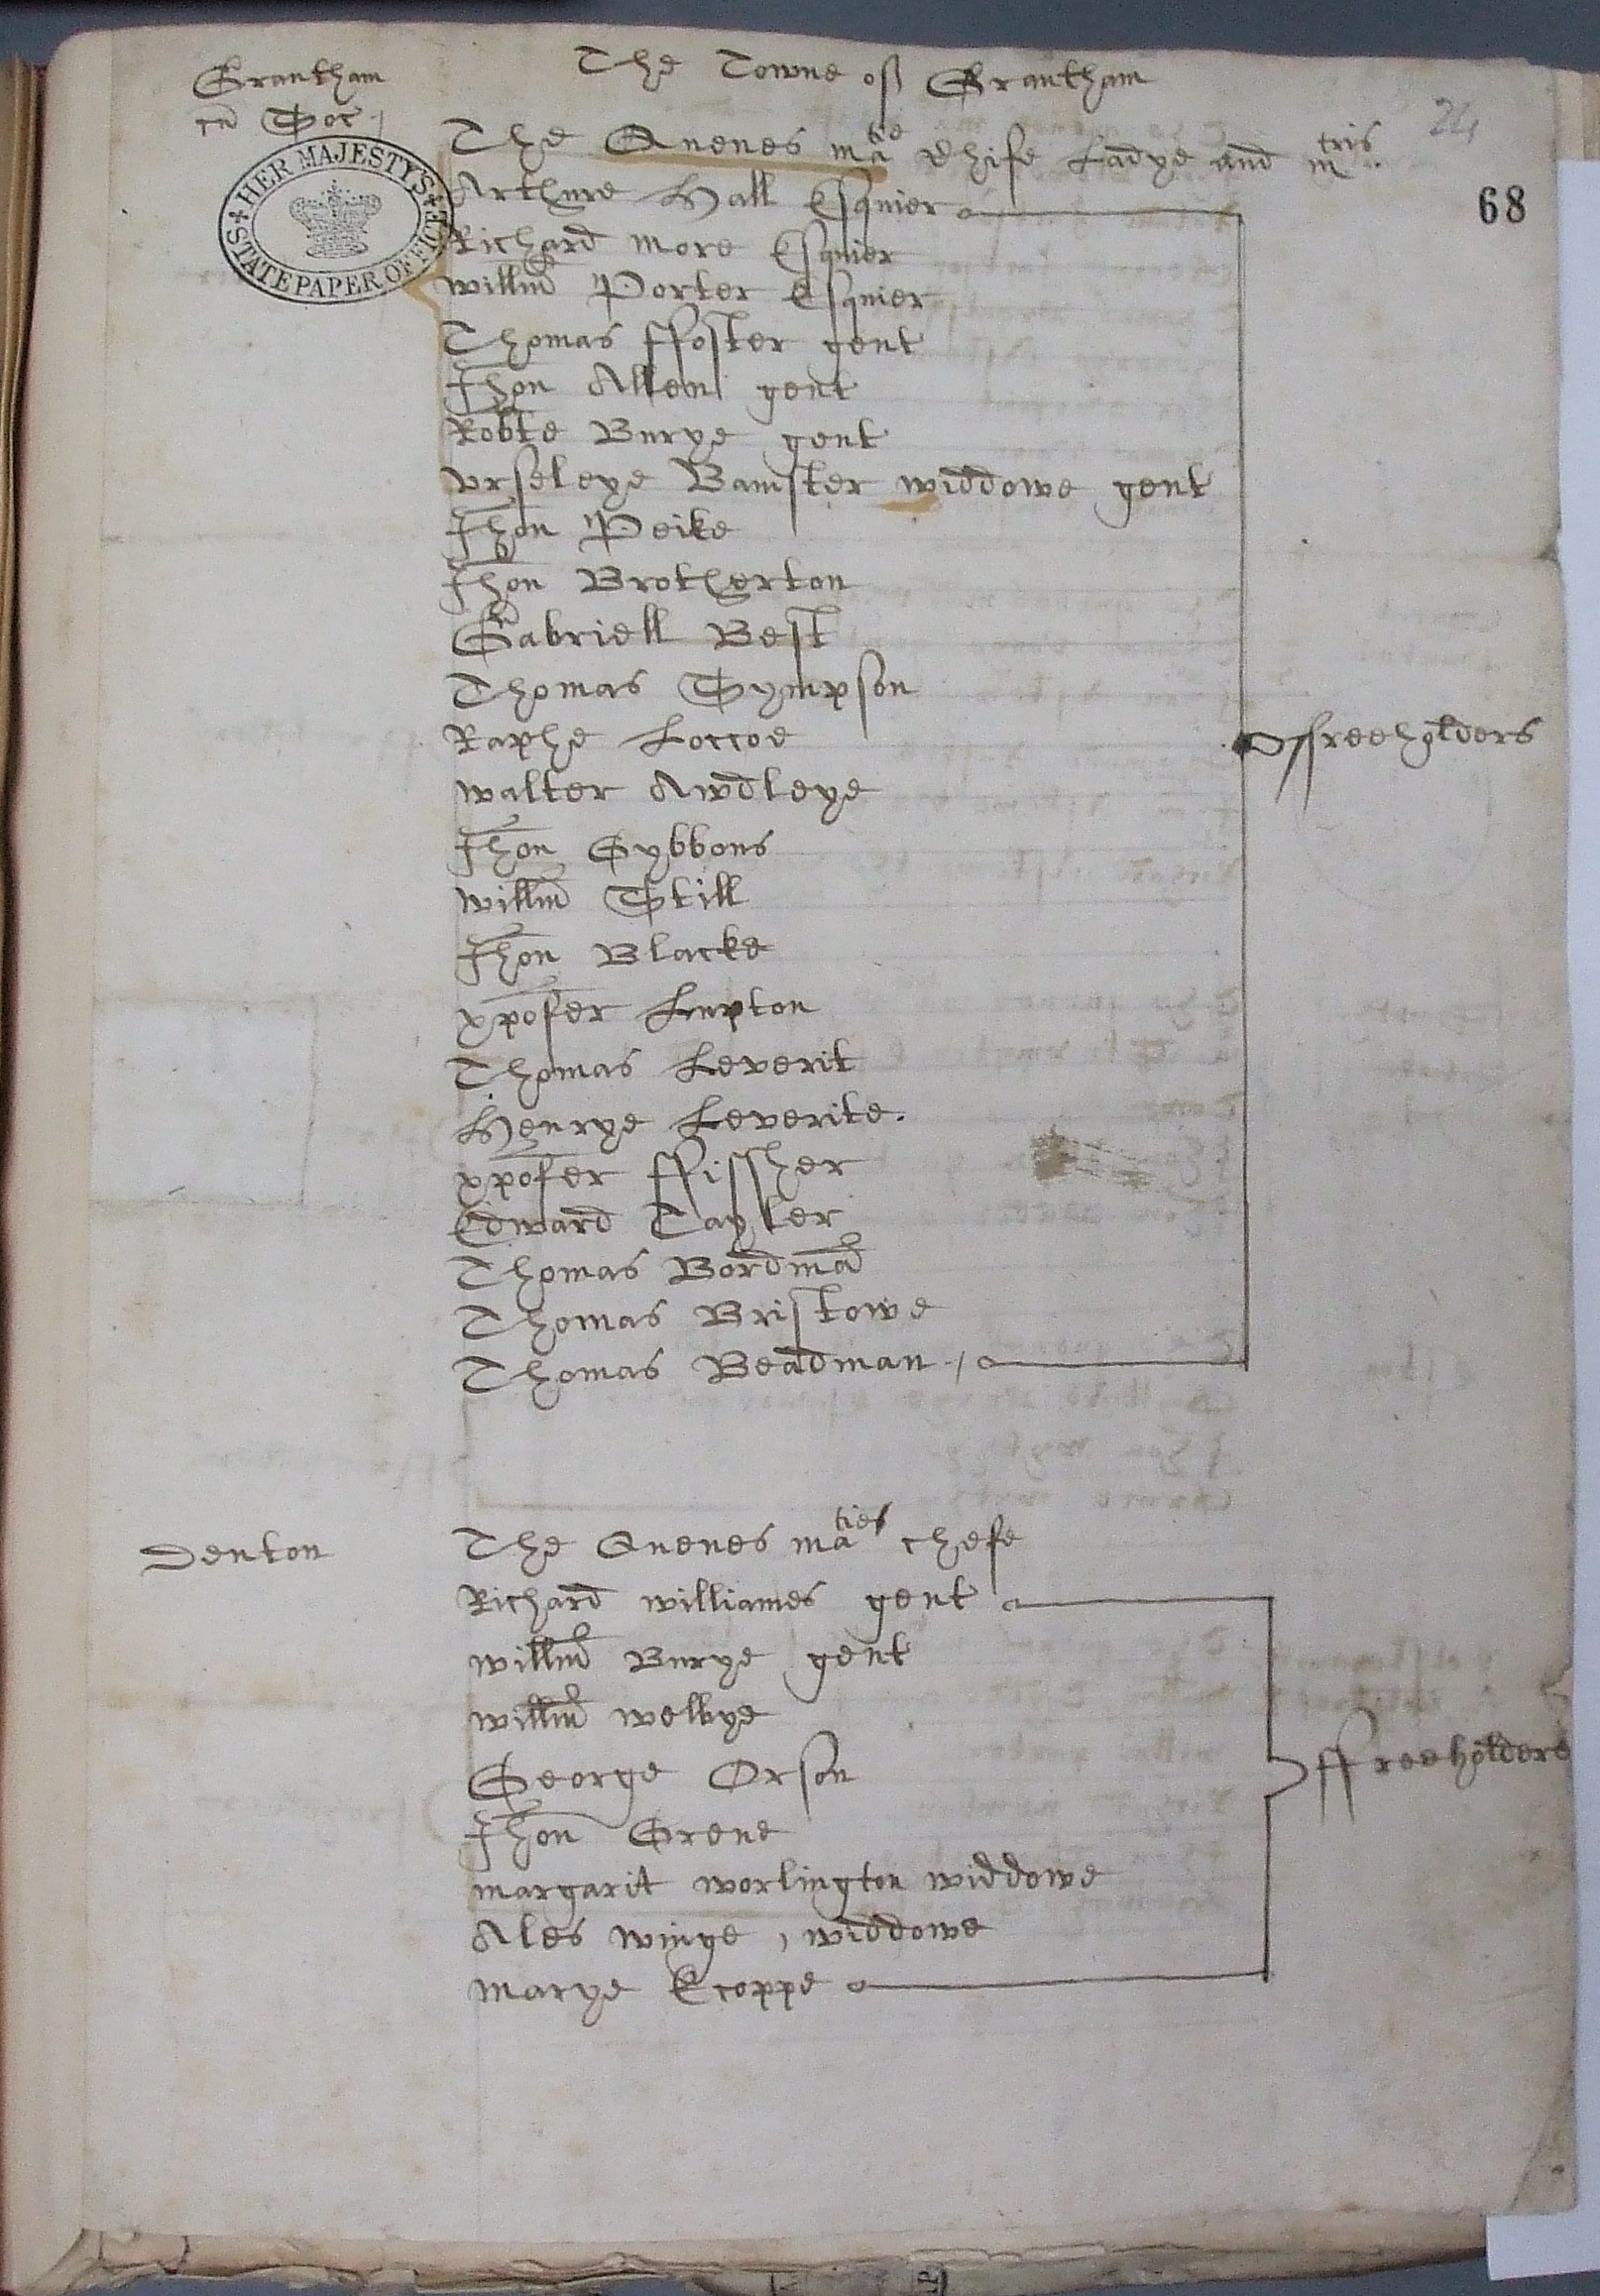 The Towne off Grantham
Grantham
cū Soc
24
68
HER MAJESTY'S STATE PAPER OFFICE
The Quenes ma^tie chife Ladye and m^tris
Arthure Hall Esquier
Richard More Esquier
Willm̄ Porter Esquier
Thomas ffoster gent
Jhon Allen gent
Robte Burye gent
Urseleye Banister widdowe gent
Jhon Peike
Jhon Brotherton
Gabriell Best
Thomas Sympson
Raphe Loccoe
Walter Awdleye
ffreeholders
Jhon Gybbons
Willm̄ Still
Jhon Blacke
xpofer Lupton
Thomas Leverit
Henrye Leverite.
xpofer ffissher
Edward Tayler
Thomas Bordmā
Thomas Bristowe
Thomas Beadman
Denton
The Quenes ma^ties chefe
Richard Williames gent
Willm̄ Burye gent
Willm̄ Welbye
George Orson
ffreeholders
Jhon Grene
Margarit Worlington widdowe
Ales Winge, widdowe
Marye Ecoppe